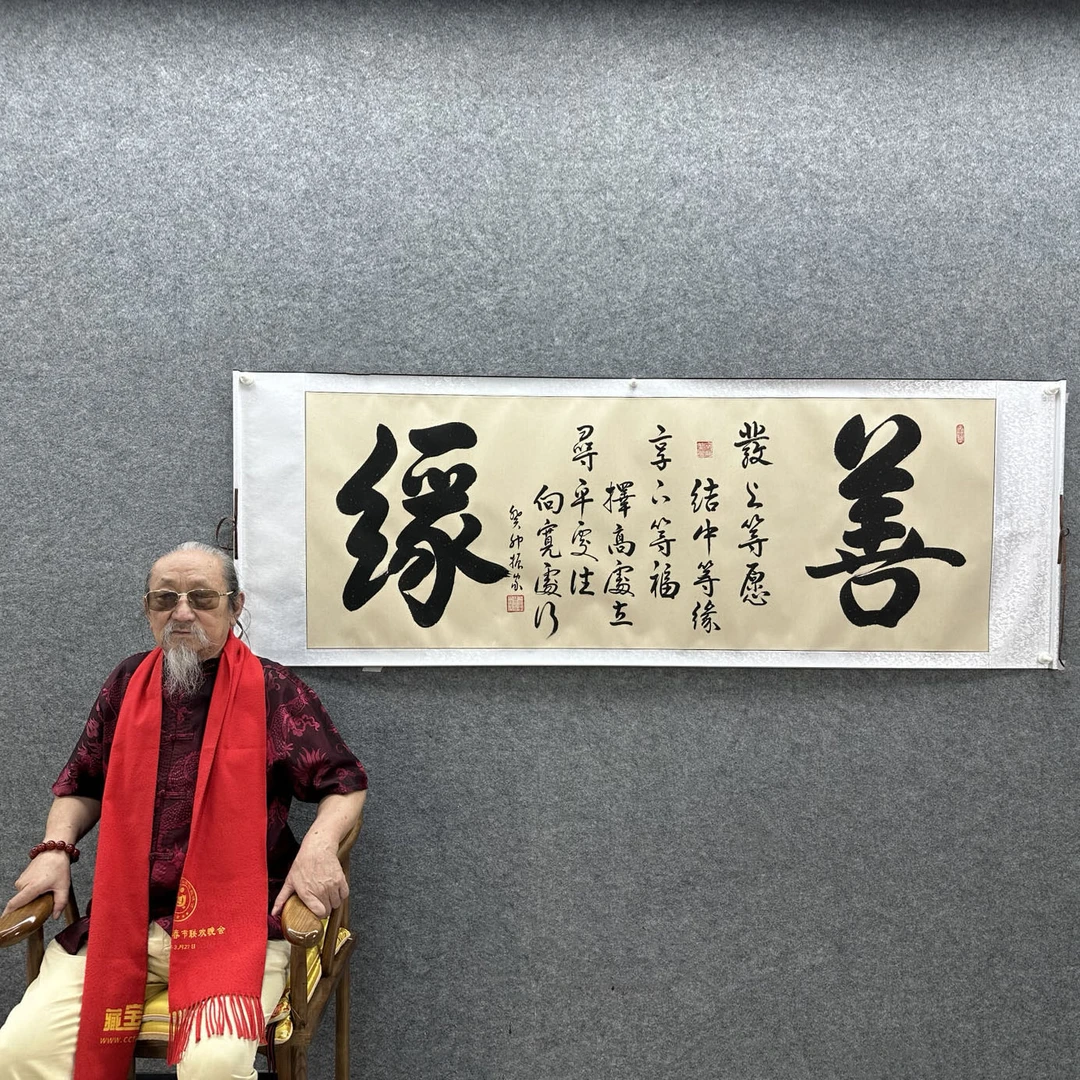 善
發上等愿
結中等緣
享下等福
擇高處立
尋平處住
向寬處行
癸卯振家
緣
春节联欢晚会
藏宝
www.cc